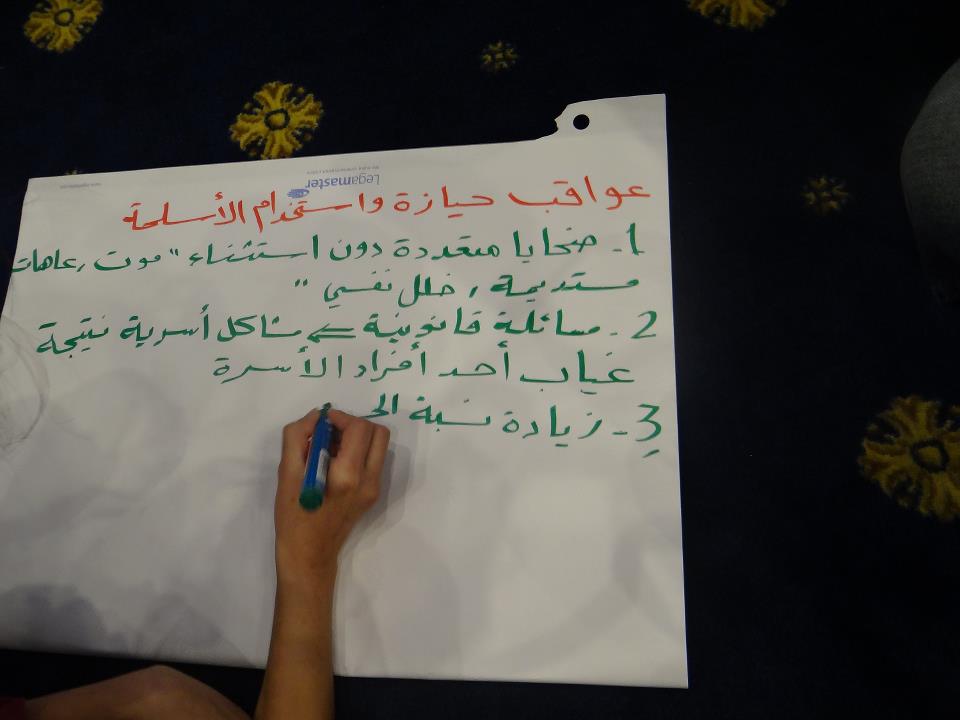 Legamaster
عواقب حيازة واستخدام الأسلحة
1- ضحايا متعددة دون استثناء "موت، عاهات
مستديمة، خلل نفسي"
2- مسائلة قانونية ⇐ مشاكل أسرية نتيجة
غياب أحد أفراد الأسرة
3- زيادة نسبة الجـ